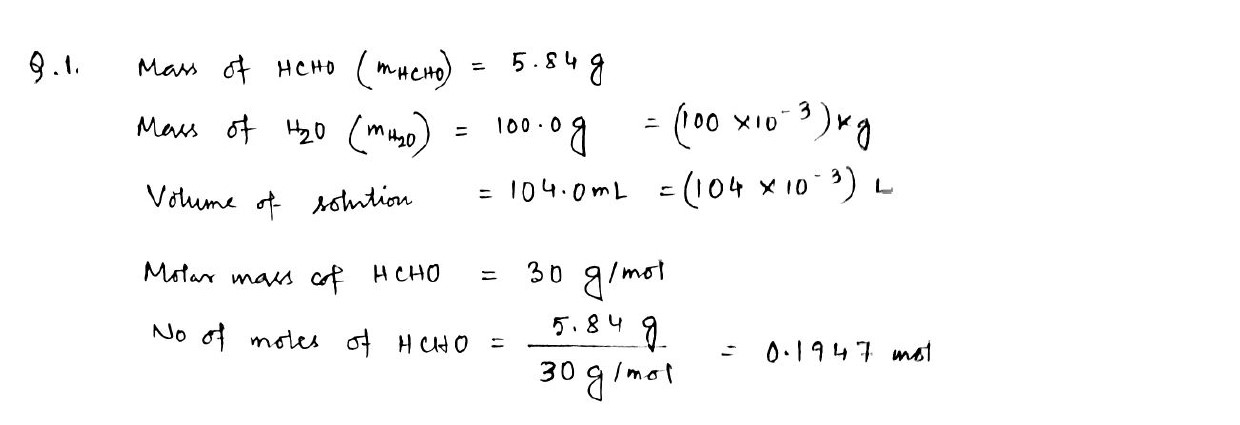 Q.1. Mass of HCHO (mHCHO) = 5.84 g
Mass of H2O (mH2O) = 100.0 g = (100 ×10⁻³) kg
Volume of solution = 104.0 mL = (104 × 10⁻³) L
Molar mass of HCHO = 30 g/mol
No of moles of HCHO = 5.84 g / 30 g/mol = 0.1947 mol